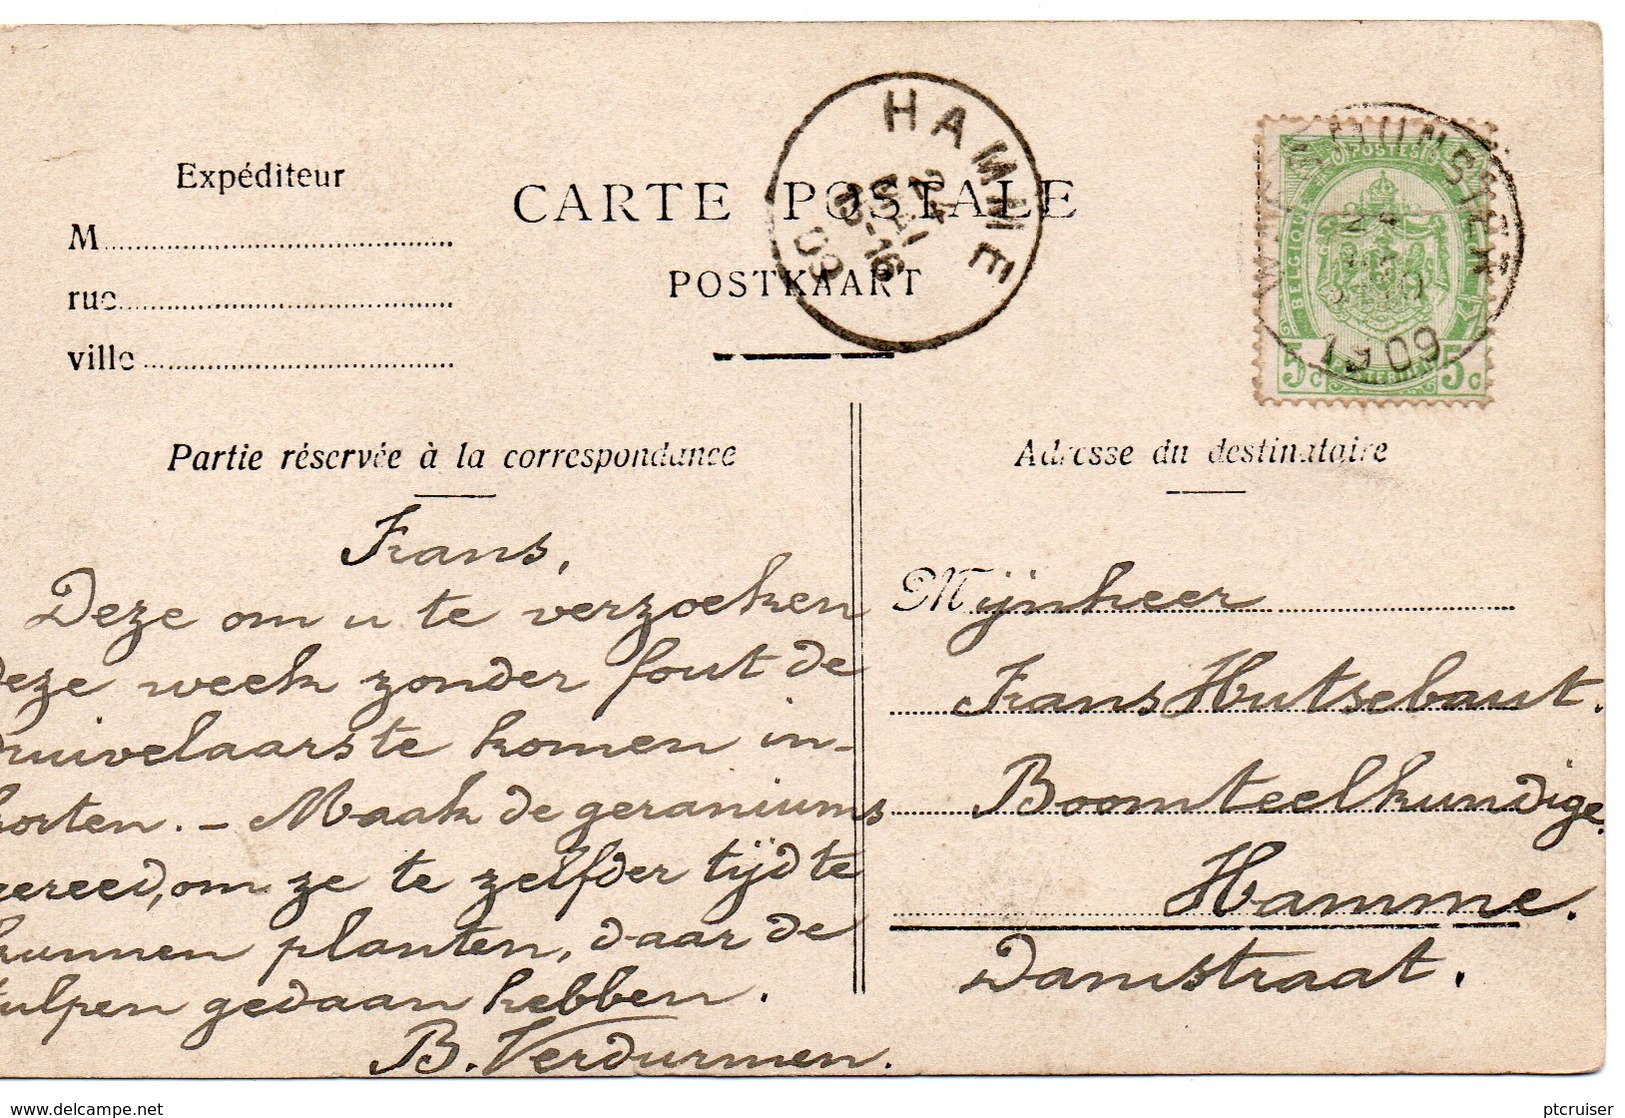 Expéditeur
M
rue
ville
CARTE POSTALE
POSTKAART
HAMME
24
MAI
09
MUNSTER
24
1909
POSTES
BELGIQUE
5c 5c
Partie réservée à la correspondance
Adresse du destinataire
Frans,
Deze om u te verzoeken
deze week zonder fout de
druivelaarste komen in-
korten. - Maak de geraniums
gereed, om ze te zelfder tijd te
kunnen planten, daar de
tulpen gedaan hebben.
B. Verdurmen.
Mijnheer
Frans Hutsebaut.
Boomteelkundige.
Hamme.
Damstraat.
www.delcampe.net
ptcruiser